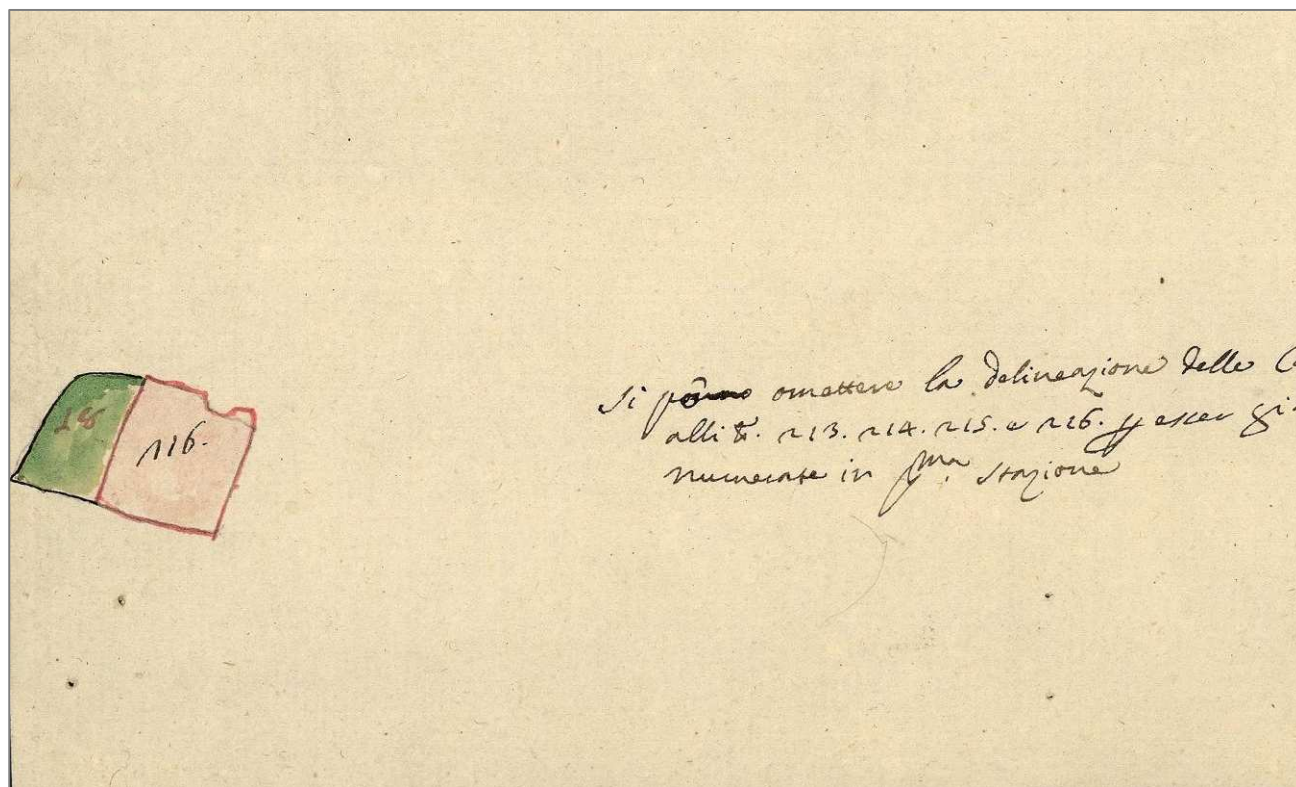 116.
Si ponno omettere la delineazione delle
alli N. 113. 114. 115. e 116. p esser gi
numerate in pma. Stazione